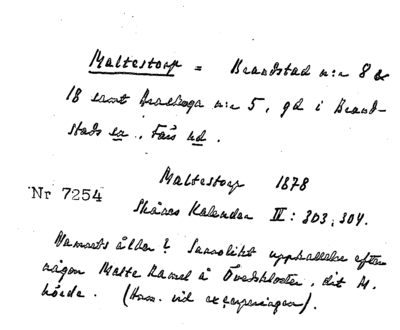 Maltestorp = Brandstad n:r 8 &
18 samt n:r 5, gd i Brand-
stads sn, Färs hd.
Maltestorp 1878
Nr 7254
Skånes Kalender II: 303, 304.
Namnets ålder? Sannolikt uppkallelse efter
någon Malte Ramel å Övedskloster, dit M.
hörde. (Anm. vid excerperingen).